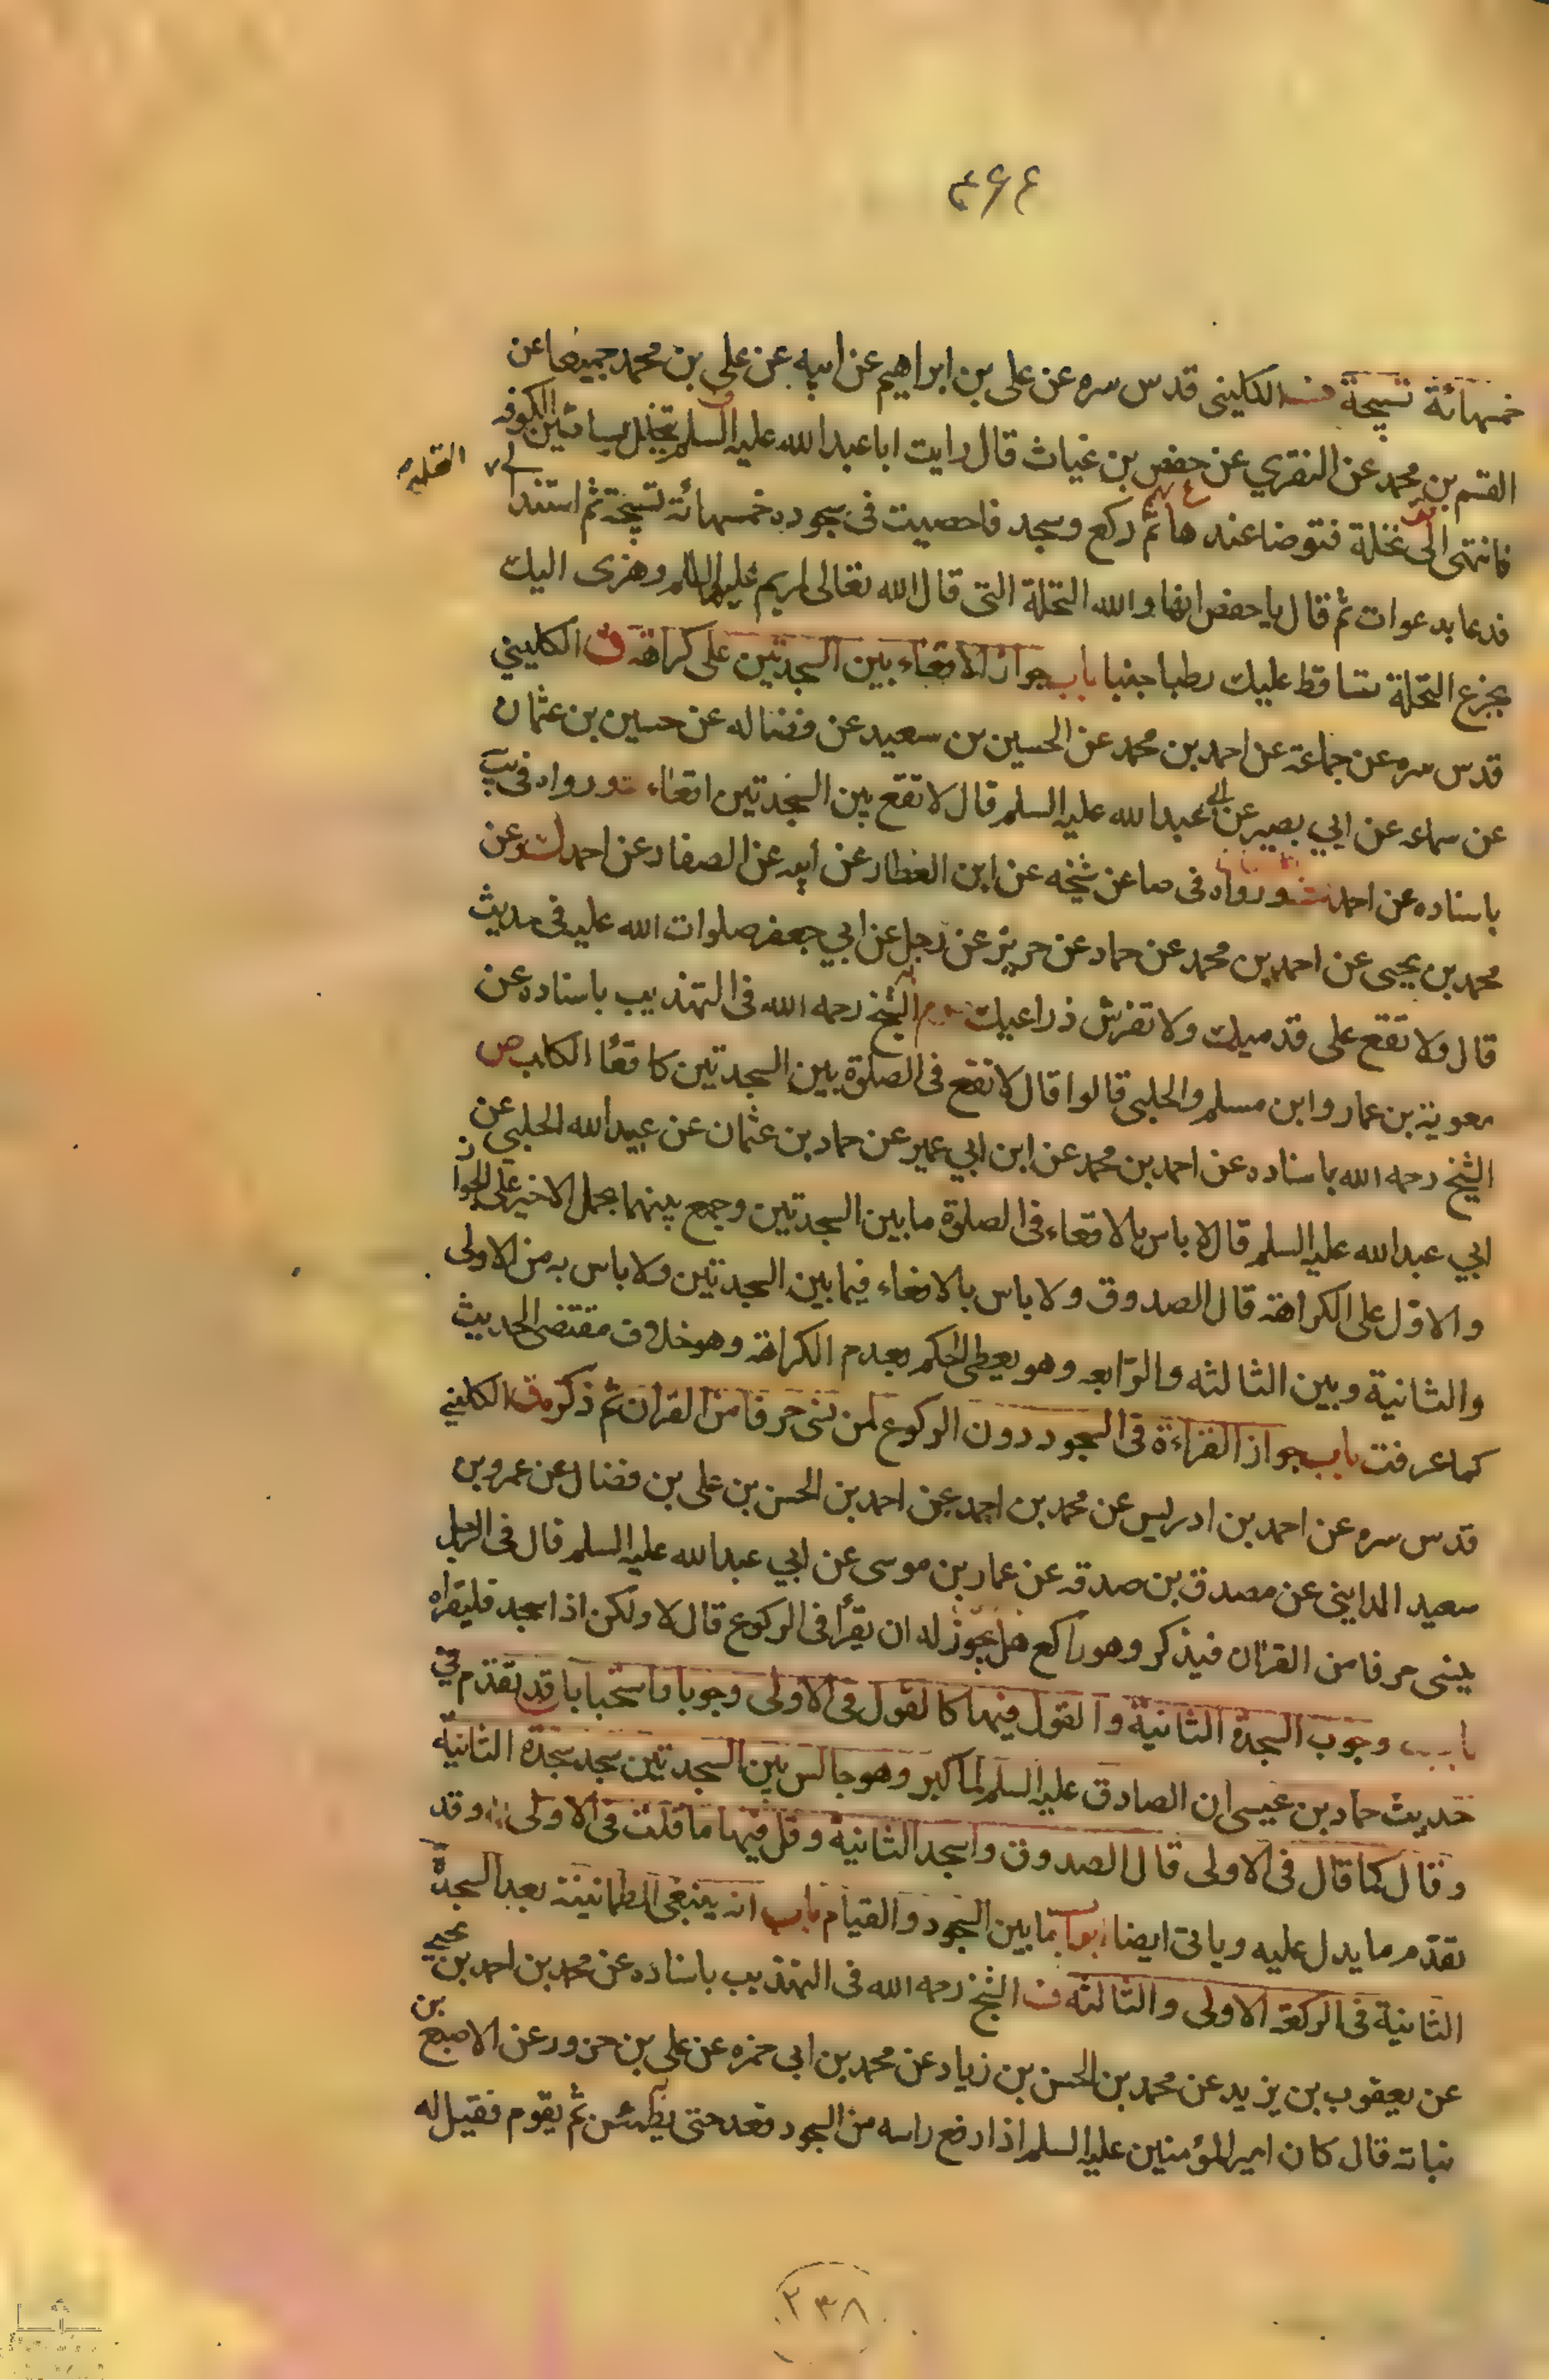 ۴۶۶
خمسمائة تسبيحة الكليني قدس سره عن علي بن ابراهيم عن ابيه عن علي بن محمد جميعا عن
القسم بن محمد عن المنقري عن حفص بن غياث قال رايت ابا عبد الله عليه السلم يتخلل بساتين الكوفه
فانتهى الى نخلة فتوضا عندها ثم ركع وسجد فاحصيت في سجوده خمسمائة تسبيحة ثم استند الى النخلة
فدعا بدعوات ثم قال يا حفص انها والله النخلة التي قال الله تعالى لمريم عليها السلم وهزى اليك
بجزع النخلة تساقط عليك رطبا جنيا باب جواز الاقعاء بين السجدتين على كراهة ق الكليني
قدس سره عن جماعة عن احمد بن محمد عن الحسين بن سعيد عن فضاله عن حسين بن عثمان
عن سماعه عن ابي بصير عن ابي عبد الله عليه السلم قال لا تقع بين السجدتين اقعاء ورواه في يب
باسناده عن احمد ورواه في صا عن شيخه عن ابن العطار عن ابيه عن الصفار عن احمد عن
محمد بن يحيى عن احمد بن محمد عن حماد عن حريز عن رجل عن ابي جعفر صلوات الله عليه في حديث
قال ولا تقع على قدميك ولا تفرش ذراعيك الشيخ رحمه الله في التهذيب باسناده عن
معوية بن عمار وابن مسلم والحلبي قالوا قال لا تقع في الصلوة بين السجدتين كاقعأ الكلب ص
الشيخ رحمه الله باسناده عن احمد بن محمد عن ابن ابي عمير عن حماد بن عثمان عن عبيد الله الحلبي عن
ابي عبد الله عليه السلم قال لا باس بالاقعاء في الصلوة ما بين السجدتين وجمع بينهما بحمل الاخير على الجواز
والاول على الكراهة قال الصدوق ولا باس بالاقعاء فيما بين السجدتين ولا باس به من الاولى
والثانية وبين الثالثه والرابعه وهو يعطى الحكم بعدم الكراهة وهو خلاف مقتضى الحديث
كما عرفت باب جواز القراءة في السجود دون الركوع لمن نسى حرفا من القران ثم ذكره ق الكليني
قدس سره عن احمد بن ادريس عن محمد بن احمد عن احمد بن الحسن بن علي بن فضال عن عمرو بن
سعيد المدايني عن مصدق بن صدقه عن عمار بن موسى عن ابي عبد الله عليه السلم قال في الرجل
ينسى حرفا من القران فيذكر وهو راكع هل يجوز له ان يقرأ في الركوع قال لا ولكن اذا سجد فليقراه
باب وجوب السجدة الثانية والقول فيها كالقول في الاولى وجوبا واستحبابا قد تقدم في
حديث حماد بن عيسى ان الصادق عليه السلم لما كبر وهو جالس بين السجدتين سجد سجدة الثانية
وقال كما قال في الاولى قال الصدوق واسجد الثانية وقل فيها ما قلت في الاولى وقد
تقدم ما يدل عليه وياتى ايضا ابواب ما بين السجود والقيام باب انه ينبغى الطمانينة بعد السجدة
الثانية في الركعة الاولى والثالثه ق الشيخ رحمه الله في التهذيب باسناده عن محمد بن احمد بن يحيى
عن يعقوب بن يزيد عن محمد بن الحسن بن زياد عن محمد بن ابي حمزه عن علي بن حزور عن الاصبغ بن
نباته قال كان امير المؤمنين عليه السلم اذا رفع راسه من السجود قعد حتى يطمئن ثم يقوم فقيل له
۲۳۸